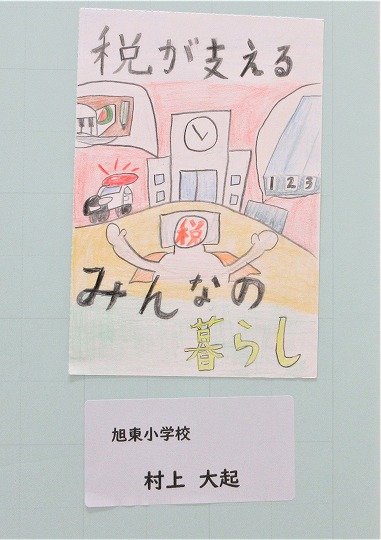 税が支える
1 2 3
税
みんなの
暮らし
旭東小学校
村上 大起